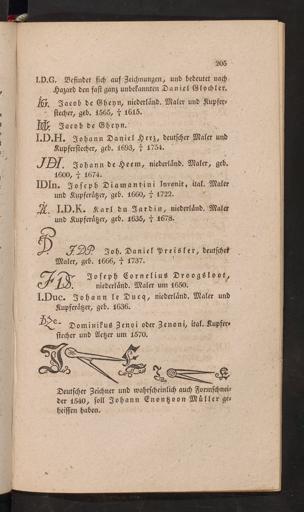 205
I.D.G. Befindet sich auf Zeichnungen, und bedeutet nach
Hazard den fast ganz unbekannten Daniel Glockler.
Jacob de Gheyn, niederländ. Maler und Kupfer-
stecher, geb. 1565, † 1615.
Jacob de Gheyn.
I.D.H. Johann Daniel Herz, deutscher Maler und
Kupferstecher, geb. 1693, † 1754.
JDH. Johann de Heem, niederländ. Maler, geb.
1600, † 1674.
IDIn. Joseph Diamantini Invenit, ital. Maler
und Kupferätzer, geb. 1660, † 1722.
I.D.K. Karl du Jardin, niederländ. Maler
und Kupferätzer, geb. 1635, † 1678.
J.DP. Joh. Daniel Preisler, deutscher
Maler, geb. 1666, † 1737.
Joseph Cornelius Droogsloot,
niederländ. Maler um 1650.
I.Duc. Johann le Ducq, niederländ. Maler und
Kupferätzer, geb. 1636.
Dominikus Zenoi oder Zenoni, ital. Kupfer-
stecher und Aetzer um 1570.
Deutscher Zeichner und wahrscheinlich auch Formschnei-
der 1540, soll Johann Enontzoon Müller ge-
heissen haben.